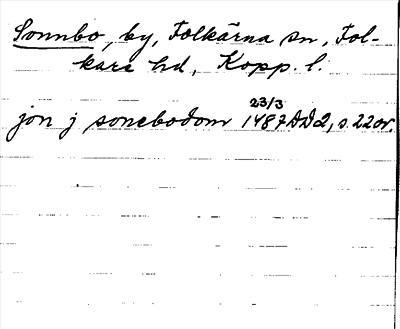 Sonnbo, by, Folkärna sn, Fol-
kare hd, Kopp. l.
23/3
jon j sonebodom 1487 DD2, s. 22 or.